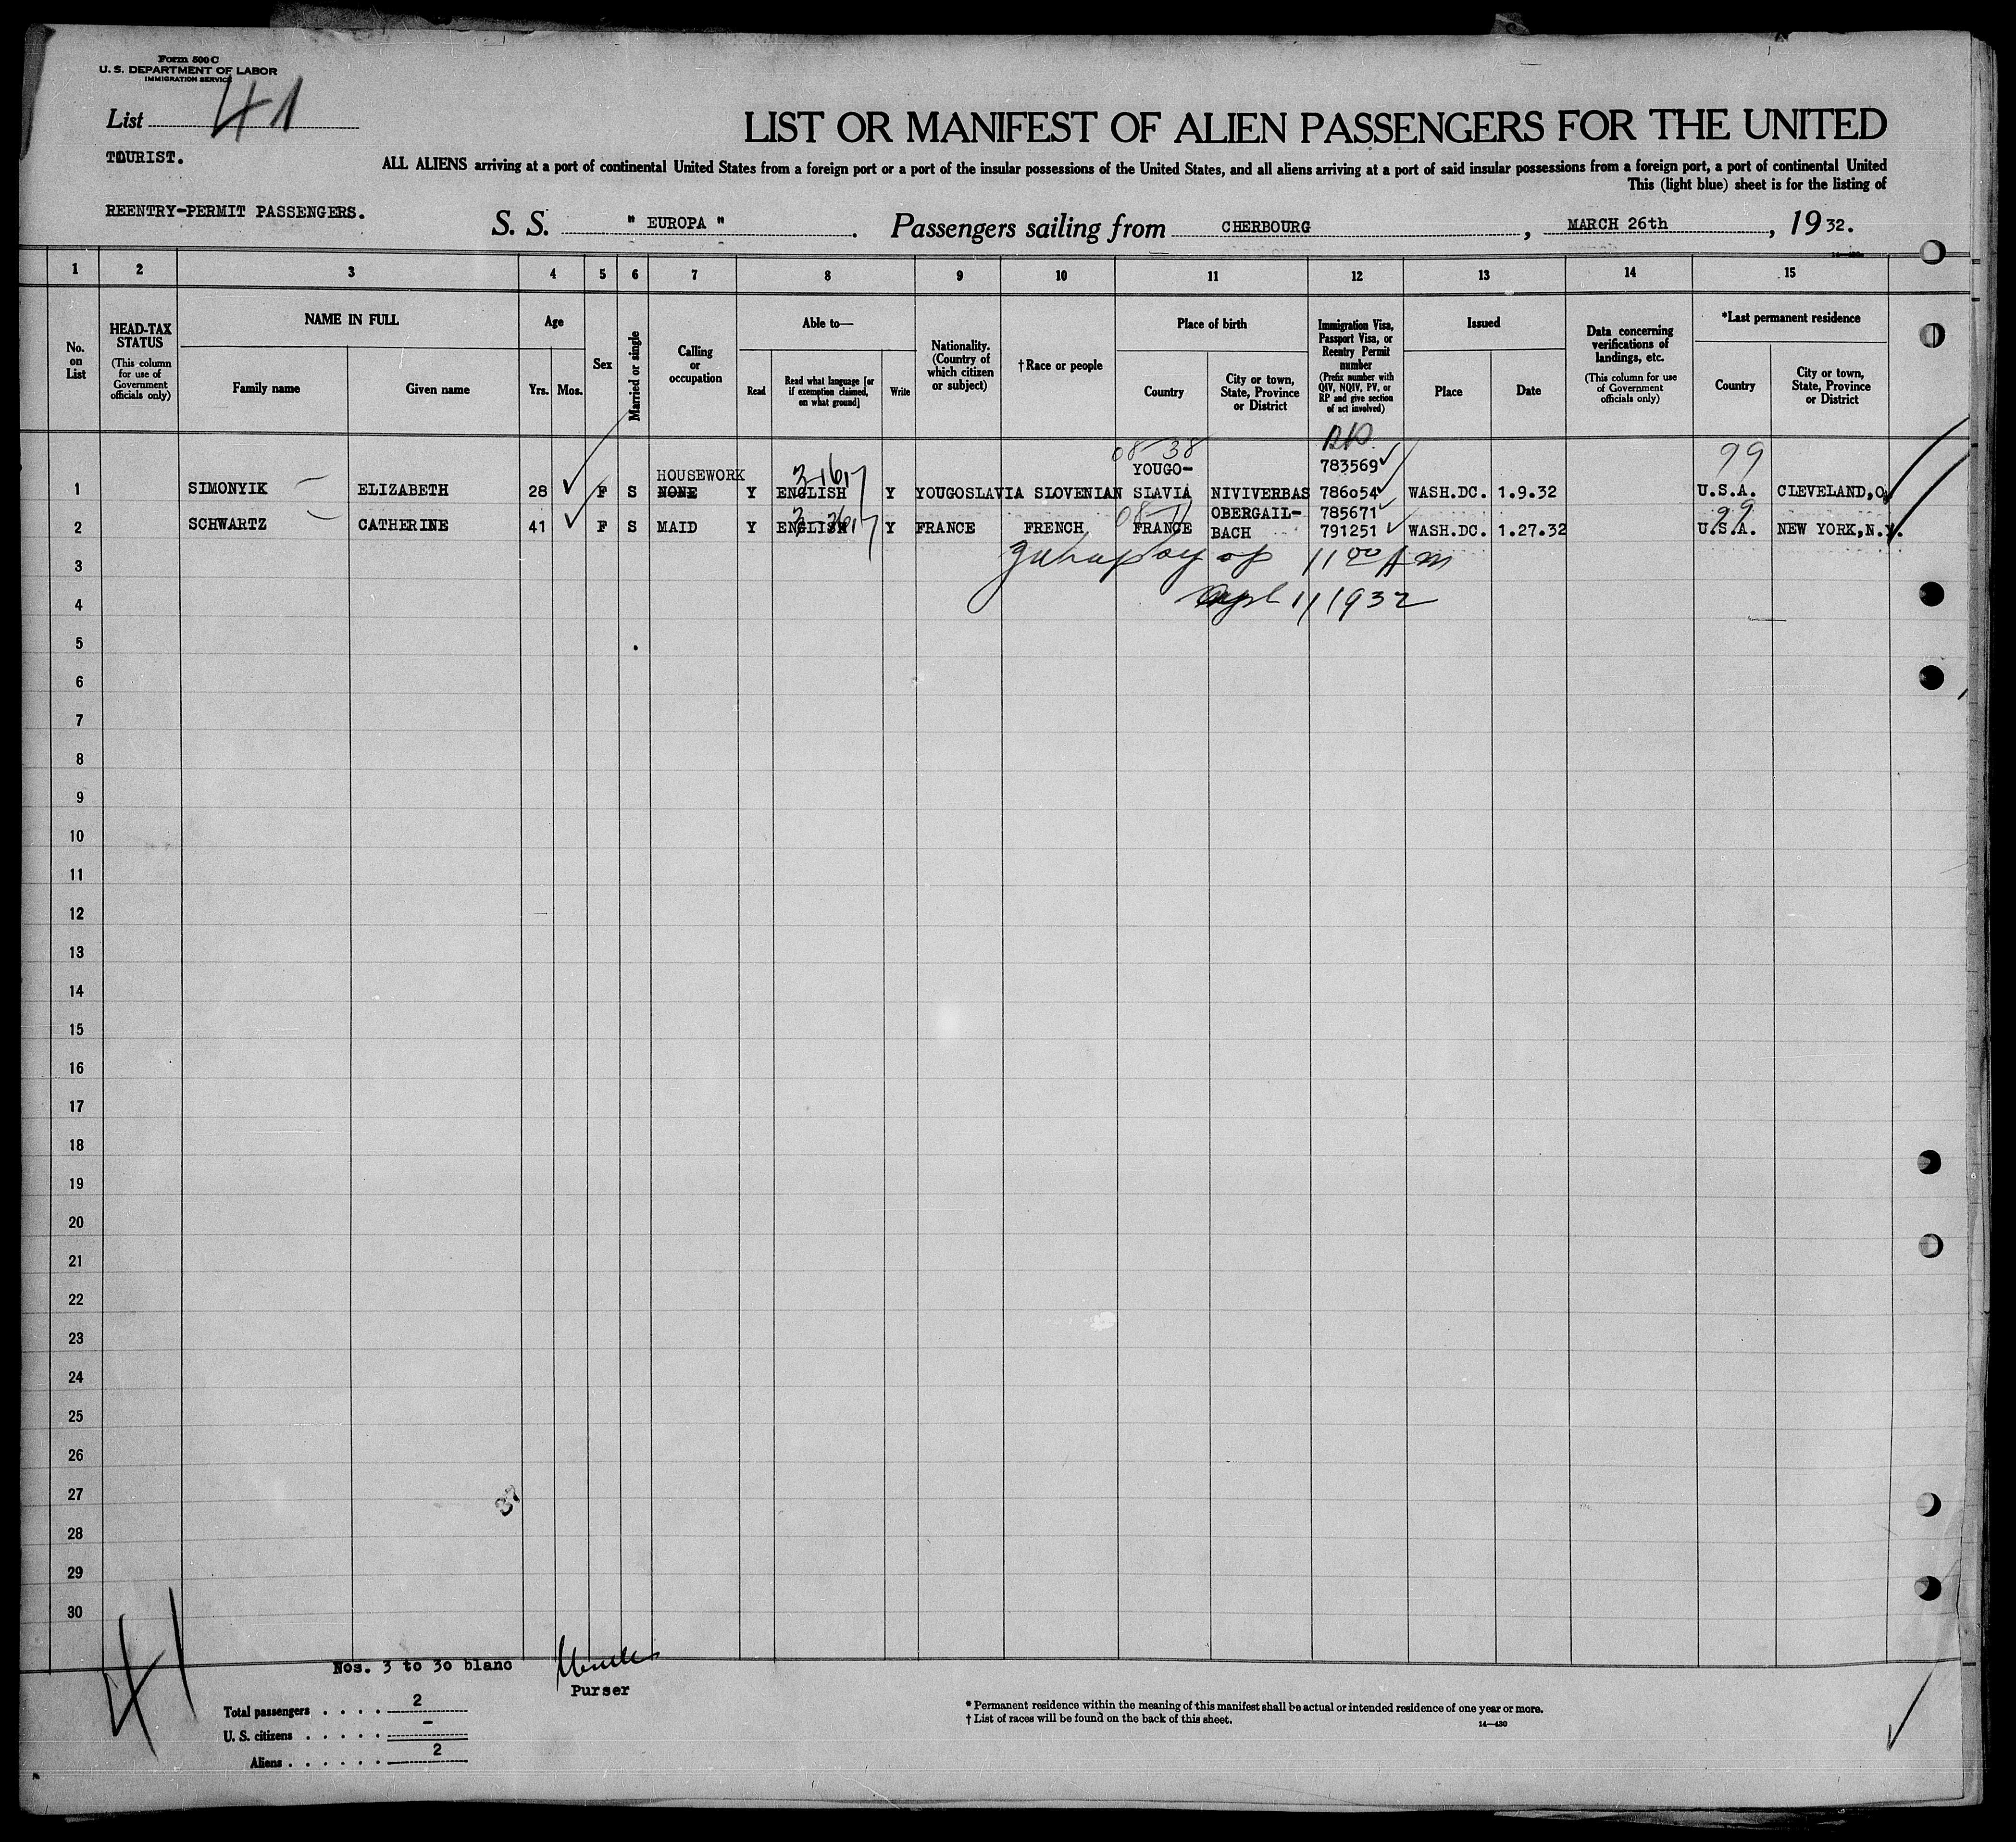 Form 500 C
U. S. DEPARTMENT OF LABOR
IMMIGRATION SERVICE
List 41
TOURIST.
REENTRY-PERMIT PASSENGERS.
LIST OR MANIFEST OF ALIEN PASSENGERS FOR THE UNITED
ALL ALIENS arriving at a port of continental United States from a foreign port or a port of the insular possessions of the United States, and all aliens arriving at a port of said insular possessions from a foreign port, a port of continental United
This (light blue) sheet is for the listing of
S. S. " EUROPA ". Passengers sailing from CHERBOURG, MARCH 26th, 1932.
1 2 3 4 5 6 7 8 9 10 11 12 13 14 15
No. on List
HEAD-TAX STATUS
(This column for use of Government officials only)
NAME IN FULL
Family name
Given name
Age
Yrs. Mos.
Sex
Married or single
Calling or occupation
Able to—
Read
Read what language [or if exemption claimed, on what ground]
Write
Nationality. (Country of which citizen or subject)
† Race or people
Place of birth
Country
City or town, State, Province or District
Immigration Visa, Passport Visa, or Reentry Permit number
(Prefix number with QIV, NQIV, PV, or RP and give section of act involved)
Issued
Place
Date
Data concerning verifications of landings, etc.
(This column for use of Government officials only)
*Last permanent residence
Country
City or town, State, Province or District
08-38 99
HOUSEWORK YOUGO- 783569
1 SIMONYIK ELIZABETH 28 F S NONE Y ENGLISH Y YOUGOSLAVIA SLOVENIAN SLAVIA NIVIVERBAS 786054 WASH.DC. 1.9.32 U.S.A. CLEVELAND,O.
OBERGAIL- 785671 99
2 SCHWARTZ CATHERINE 41 F S MAID Y ENGLISH Y FRANCE FRENCH FRANCE BACH 791251 WASH.DC. 1.27.32 U.S.A. NEW YORK,N.Y.
3 11 00 A m
4 1/1932
5
6
7
8
9
10
11
12
13
14
15
16
17
18
19
20
21
22
23
24
25
26
27
28
29
30
37
41
Nos. 3 to 30 blanc
Purser
Total passengers . . . . 2
U. S. citizens . . . . . –
Aliens . . . . . . 2
* Permanent residence within the meaning of this manifest shall be actual or intended residence of one year or more.
† List of races will be found on the back of this sheet.
14—430